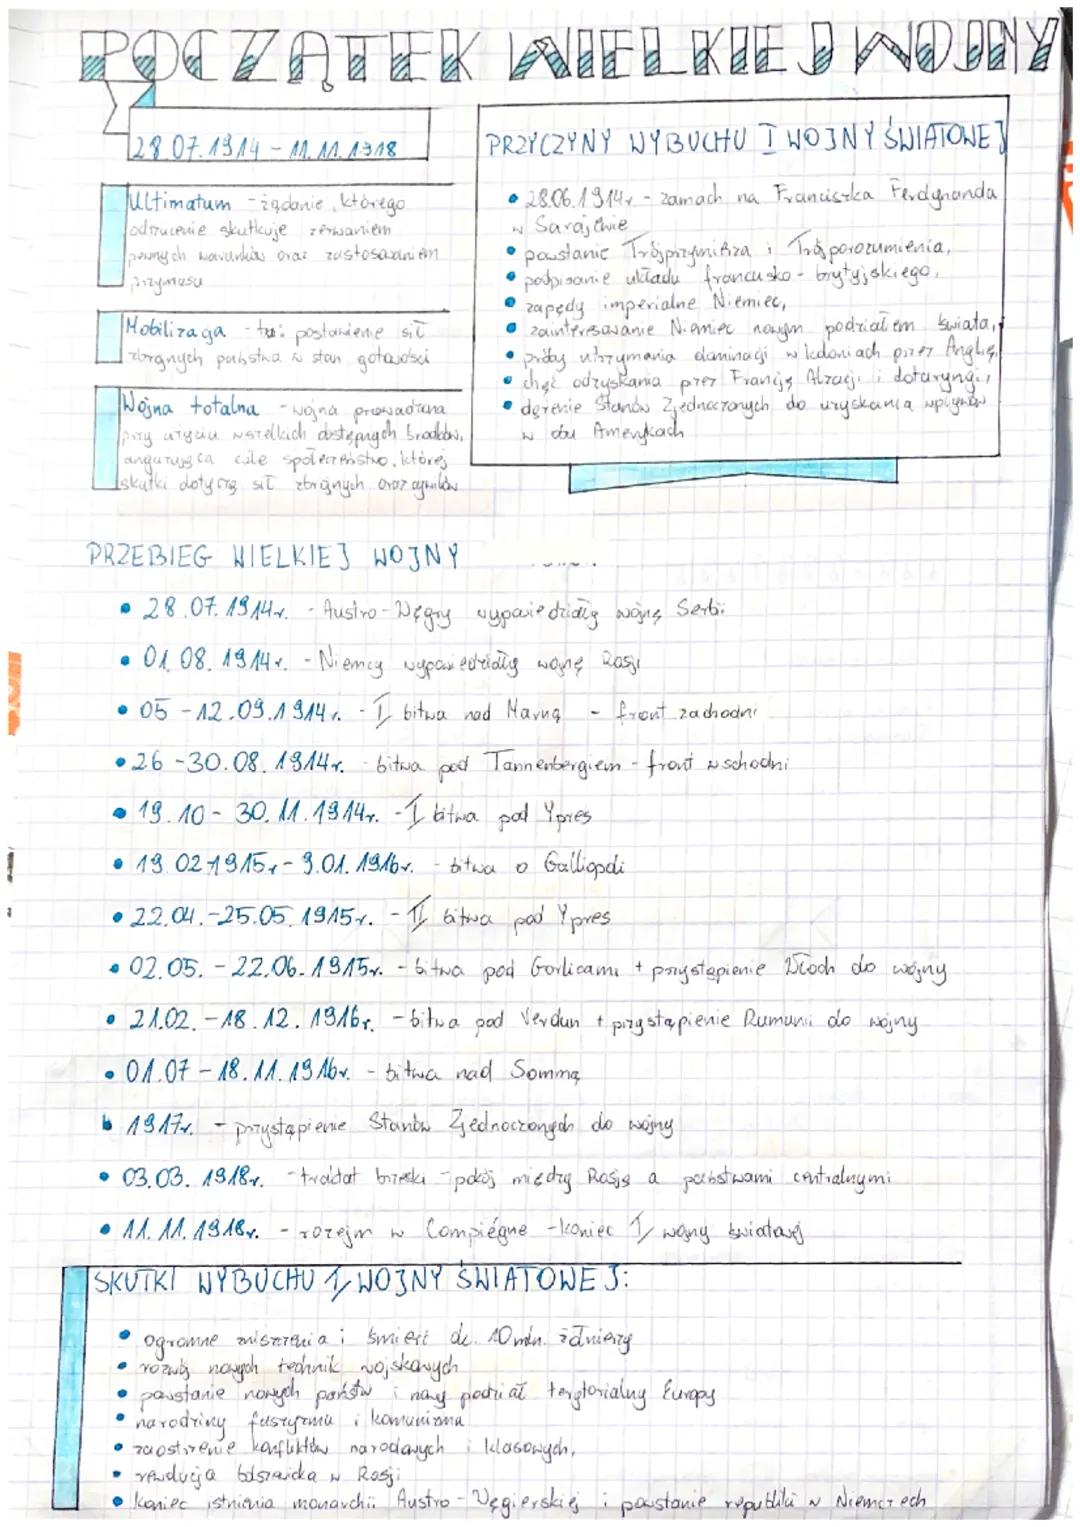 POCZĄTEK WIELKIEJ WOJNY
28.07.1914 - 11.11.1918
Ultimatum - żądanie, którego
odrzucenie skutkuje zerwaniem
pewnych warunków oraz zastosowaniem
przymusu
Mobilizacja - tu: postawienie sił
zbrojnych państwa w stan gotowości
Wojna totalna - wojna prowadzona
przy użyciu wszelkich dostępnych środków,
angażująca całe społeczeństwo, której
skutki dotyczą sił zbrojnych oraz cywilów
PRZYCZYNY WYBUCHU I WOJNY ŚWIATOWEJ
• 28.06.1914r. - zamach na Franciszka Ferdynanda
w Sarajewie
• powstanie Trójprzymierza i Trójporozumienia,
• podpisanie układu francusko - brytyjskiego,
• zapędy imperialne Niemiec,
• zainteresowanie Niemiec nowym podziałem świata,
• próby utrzymania dominacji w koloniach przez Anglię,
• chęć odzyskania przez Francję Alzacji i Lotaryngii,
• dążenie Stanów Zjednoczonych do uzyskania wpływów
w obu Amerykach
PRZEBIEG WIELKIEJ WOJNY
• 28.07.1914r. - Austro-Węgry wypowiedziały wojnę Serbii
• 01.08.1914r. - Niemcy wypowiedziały wojnę Rosji
• 05 - 12.09.1914r. - I bitwa nad Marną - front zachodni
• 26 - 30.08.1914r. - bitwa pod Tannenbergiem - front wschodni
• 19.10 - 30.11.1914r. - I bitwa pod Ypres
• 19.02.1915r - 9.01.1916r. - bitwa o Gallipoli
• 22.04. - 25.05.1915r. - II bitwa pod Ypres
• 02.05. - 22.06.1915r. - bitwa pod Gorlicami + przystąpienie Włoch do wojny
• 21.02. - 18.12.1916r. - bitwa pod Verdun + przystąpienie Rumunii do wojny
• 01.07 - 18.11.1916r. - bitwa nad Sommą
• 1917r. - przystąpienie Stanów Zjednoczonych do wojny
• 03.03.1918r. - traktat brzeski - pokój między Rosją a państwami centralnymi
• 11.11.1918r. - rozejm w Compiégne - koniec I wojny światowej
SKUTKI WYBUCHU I WOJNY ŚWIATOWEJ:
• ogromne zniszczenia i śmierć ok. 10 mln. żołnierzy
• rozwój nowych technik wojskowych
• powstanie nowych państw i nowy podział terytorialny Europy
• narodziny faszyzmu i komunizmu
• zaostrzenie konfliktów narodowych i klasowych,
• rewolucja bolszewicka w Rosji
• koniec istnienia monarchii Austro-Węgierskiej i powstanie republiki w Niemczech